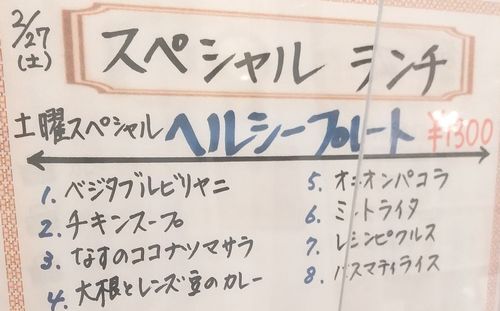 2/27
(土)
スペシャル ランチ
土曜スペシャル ヘルシープレート ¥1300
1. ベジタブルビリヤニ
2. チキンスープ
3. なすのココナツマサラ
4. 大根とレンズ豆のカレー
5. オニオンパコラ
6. ミントライタ
7. レモンピクルス
8. バスマティライス